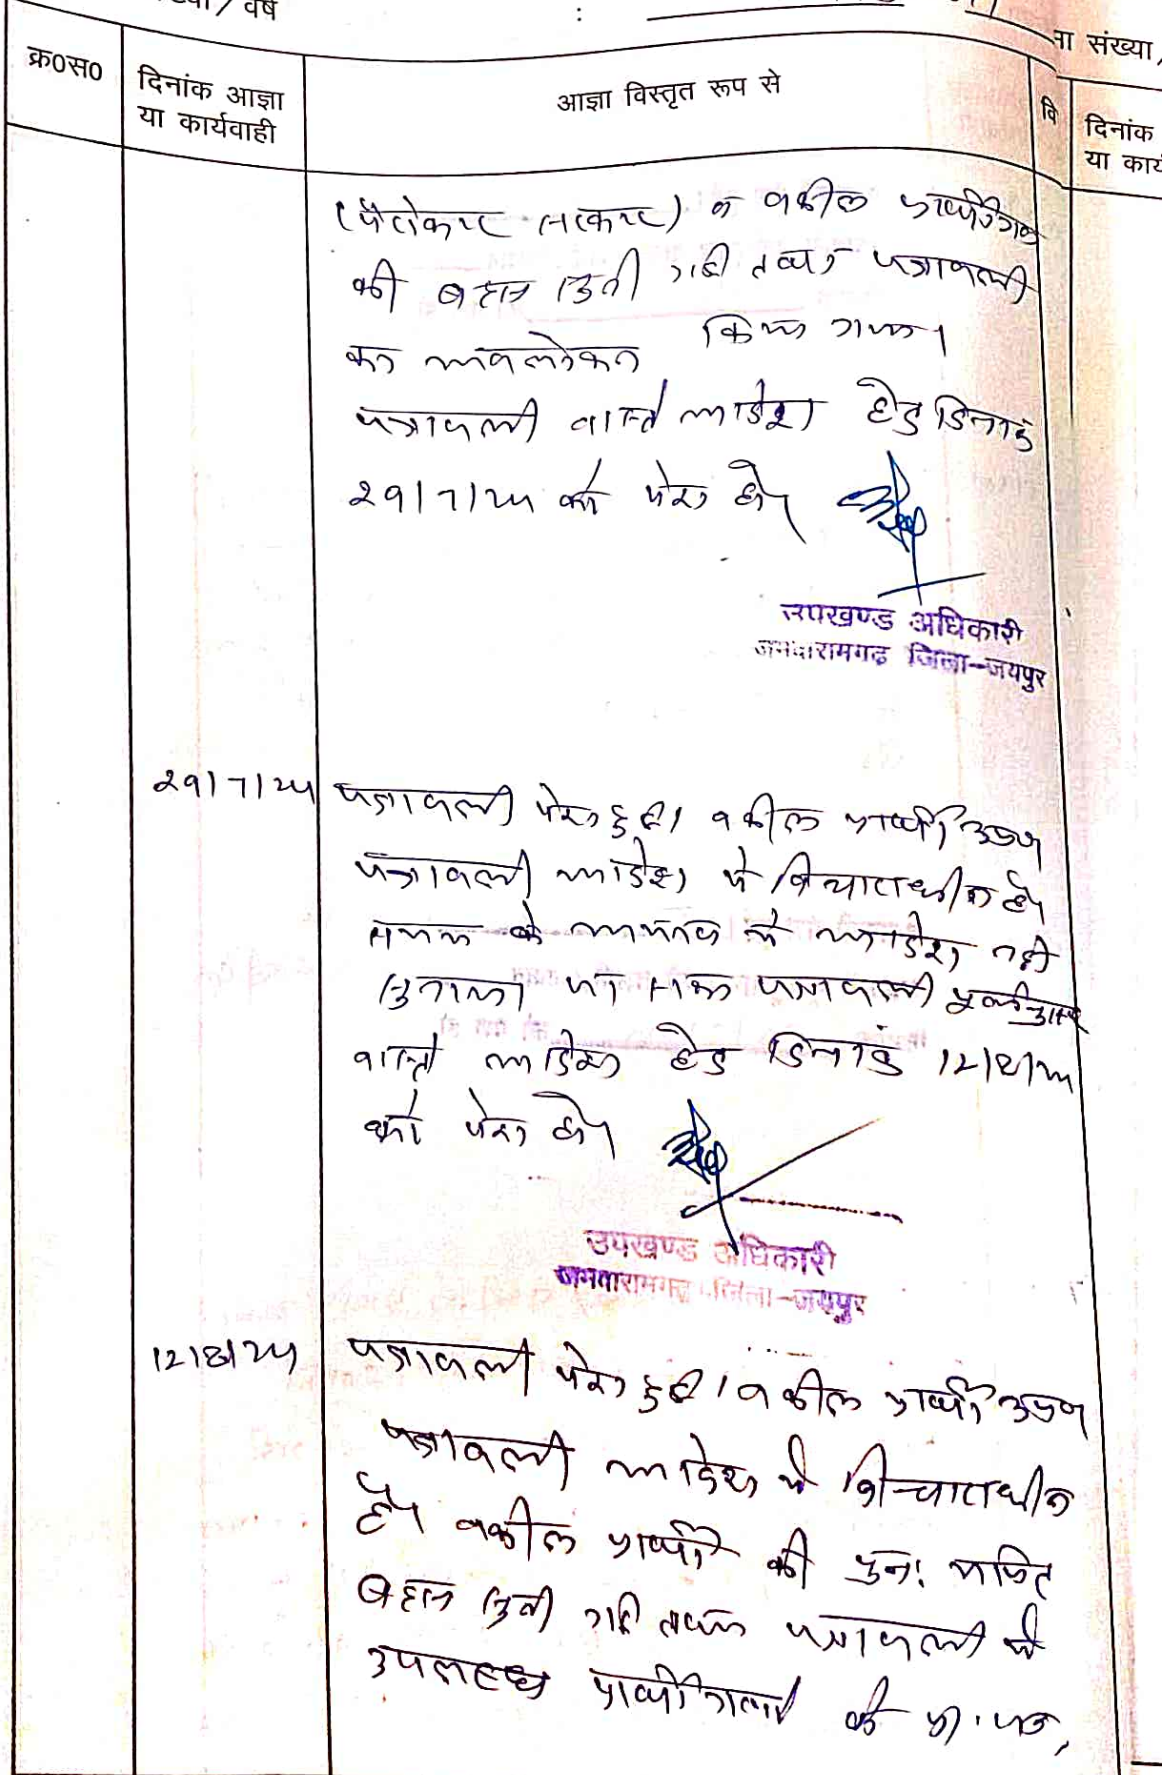 वर्ष :
ना संख्या
क्र०स० दिनांक आज्ञा या कार्यवाही आज्ञा विस्तृत रूप से वि दिनांक
या कार्य
(पैरोकार सरकार) व वकील प्रार्थीगण
की बहस सुनी गई तथा पत्रावली
का अवलोकन किया गया।
पत्रावली वास्ते आदेश हेतु दिनांक
29/7/24 को पेश हो।
उपखण्ड अधिकारी
जमवारामगढ जिला-जयपुर
29/7/24 पत्रावली पेश हुई। वकील प्रार्थी उप०
पत्रावली आदेश में विचाराधीन है।
समय के अभाव में आदेश नही
सुनाया जा सका पत्रावली पूर्वानुसार
वास्ते आदेश हेतु दिनांक 12/8/24
को पेश हो।
उपखण्ड अधिकारी
जमवारामगढ जिला-जयपुर
12/8/24 पत्रावली पेश हुई। वकील प्रार्थी उप०
पत्रावली आदेश में विचाराधीन
है। वकील प्रार्थी की पुनः
बहस सुनी गई तथा पत्रावली में
उपलब्ध प्रार्थीगण के प्रा. पत्र,